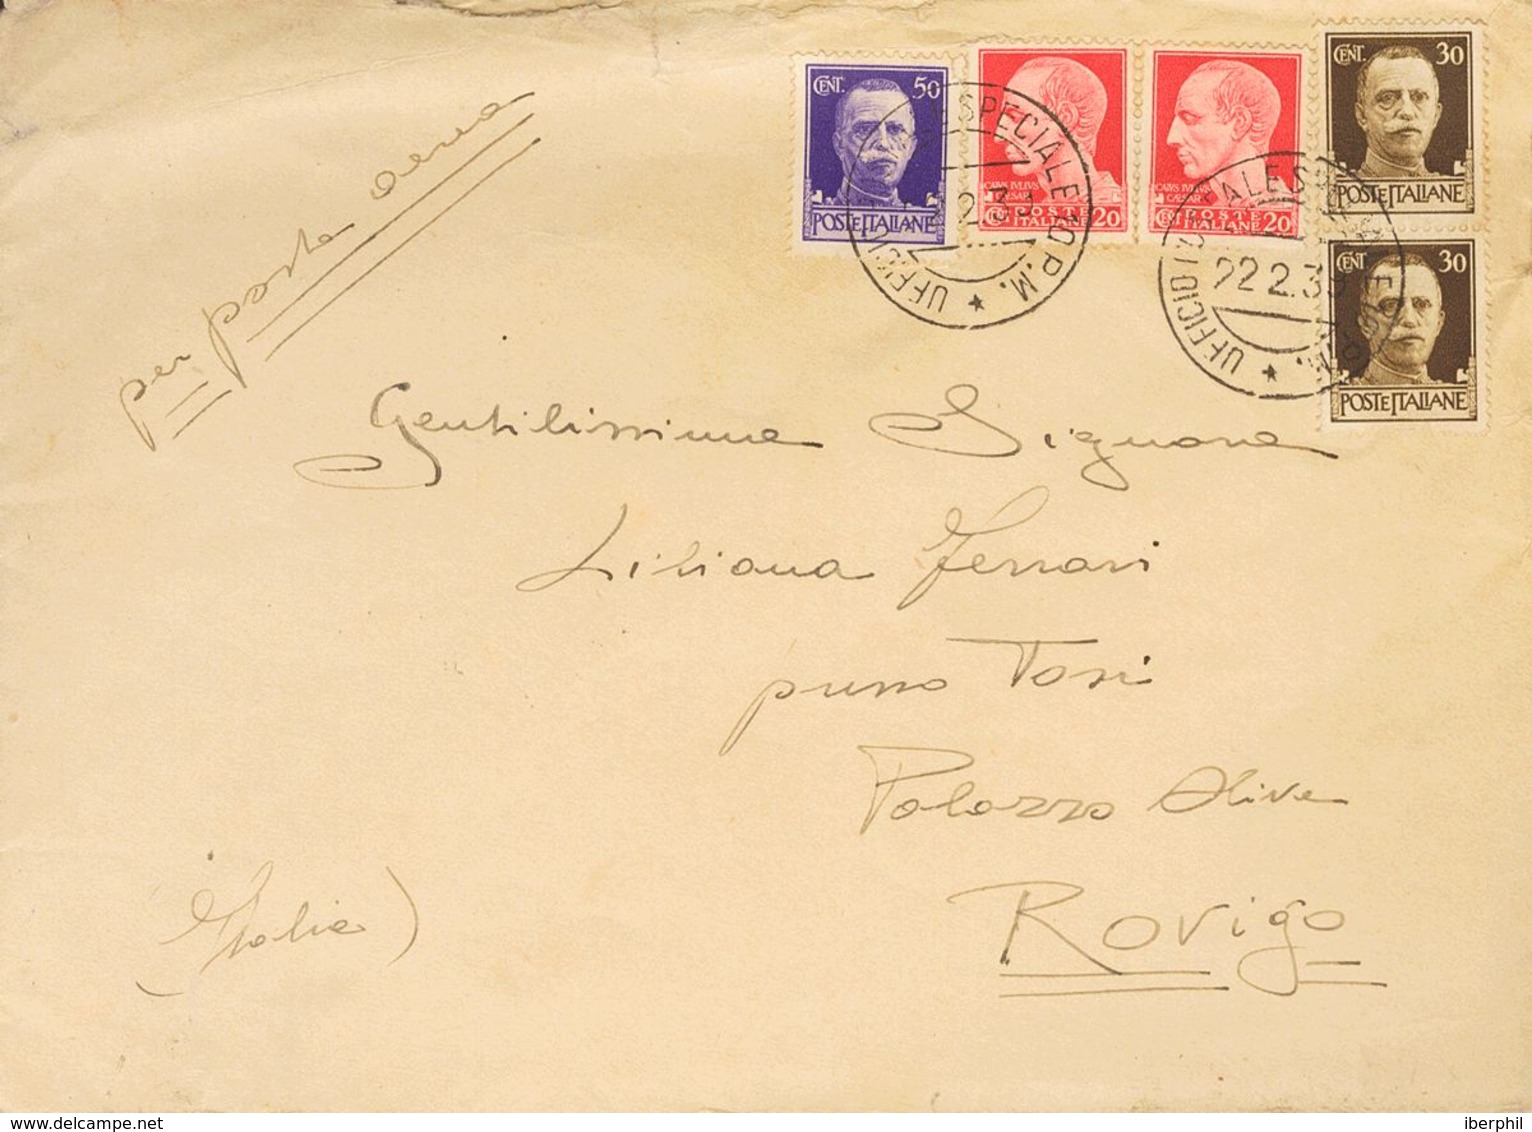 CENT. 50
POSTE ITALIANE
CAIVS IVLIVS
CAESAR
CENT POSTE ITALIANE 20
CAIVS IVLIVS
CAESAR
CENT POSTE ITALIANE 20
CENT. 30
POSTE ITALIANE
CENT 30
POSTE ITALIANE
SPECIALE 10 P.M. * UFFICIO
UFFICIO POSTALE SPECIALE P.M. *
22 2.39
per posta aerea
Gentilissima Signora
Liliana Ferrari
presso Tosi
Palazzo Oliva
Rovigo
(Italia)
iberphil